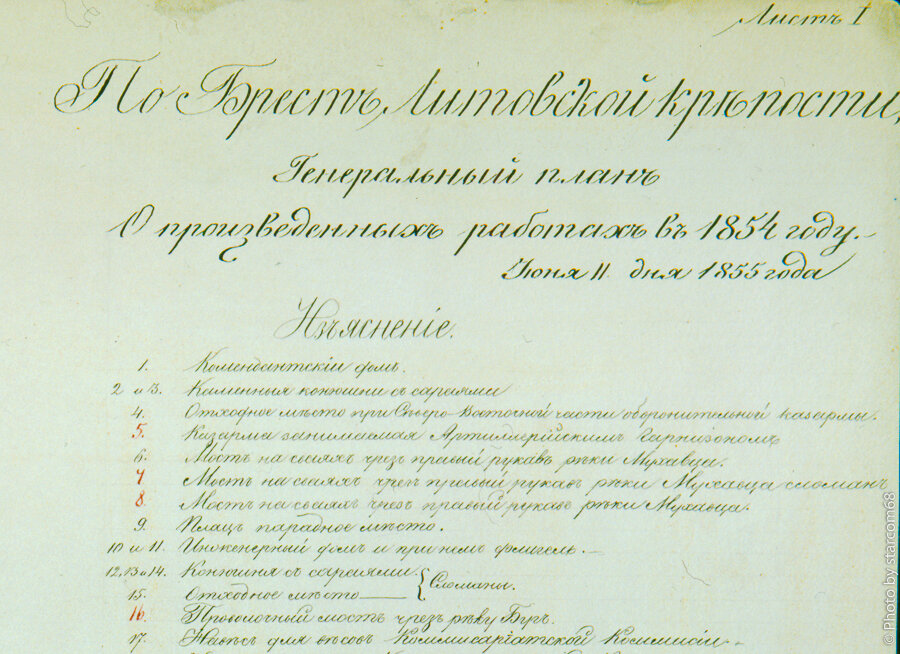 Листъ I
По Брестъ Литовской крѣпости,
Генеральный планъ
О произведенныхъ работахъ въ 1854 году.-
Июня 11 дня 1855 года
Изъяснение.
1. Комендантскій домъ.
2 и 3. Каменныя конюшни съ сараями
4. Отхходное мѣсто при Сѣверо-Восточной части оборонительной казармы.
5. Казарма занимаемая Артиллерійскимъ Гарнизономъ
6. Мостъ на сваяхъ чрезъ правый рукавъ рѣки Мухавца.
7 Мостъ на сваяхъ чрезъ правый рукавъ рѣки Мухавца сломанъ
8. Мостъ на сваяхъ чрезъ правый рукавъ рѣки Мухавца.
9. Плацъ парадное мѣсто.
10 и 11. Инженерный домъ и при немъ флигель.-
12, 13 и 14. Конюшня съ сараями.
Сломаны.
15. Отхожное мѣсто
16. Проволочный мостъ чрезъ рѣку Бугъ.
17. Навѣсъ для вѣсовъ Коммисаріатской Коммисіи
© Photo by starcom68